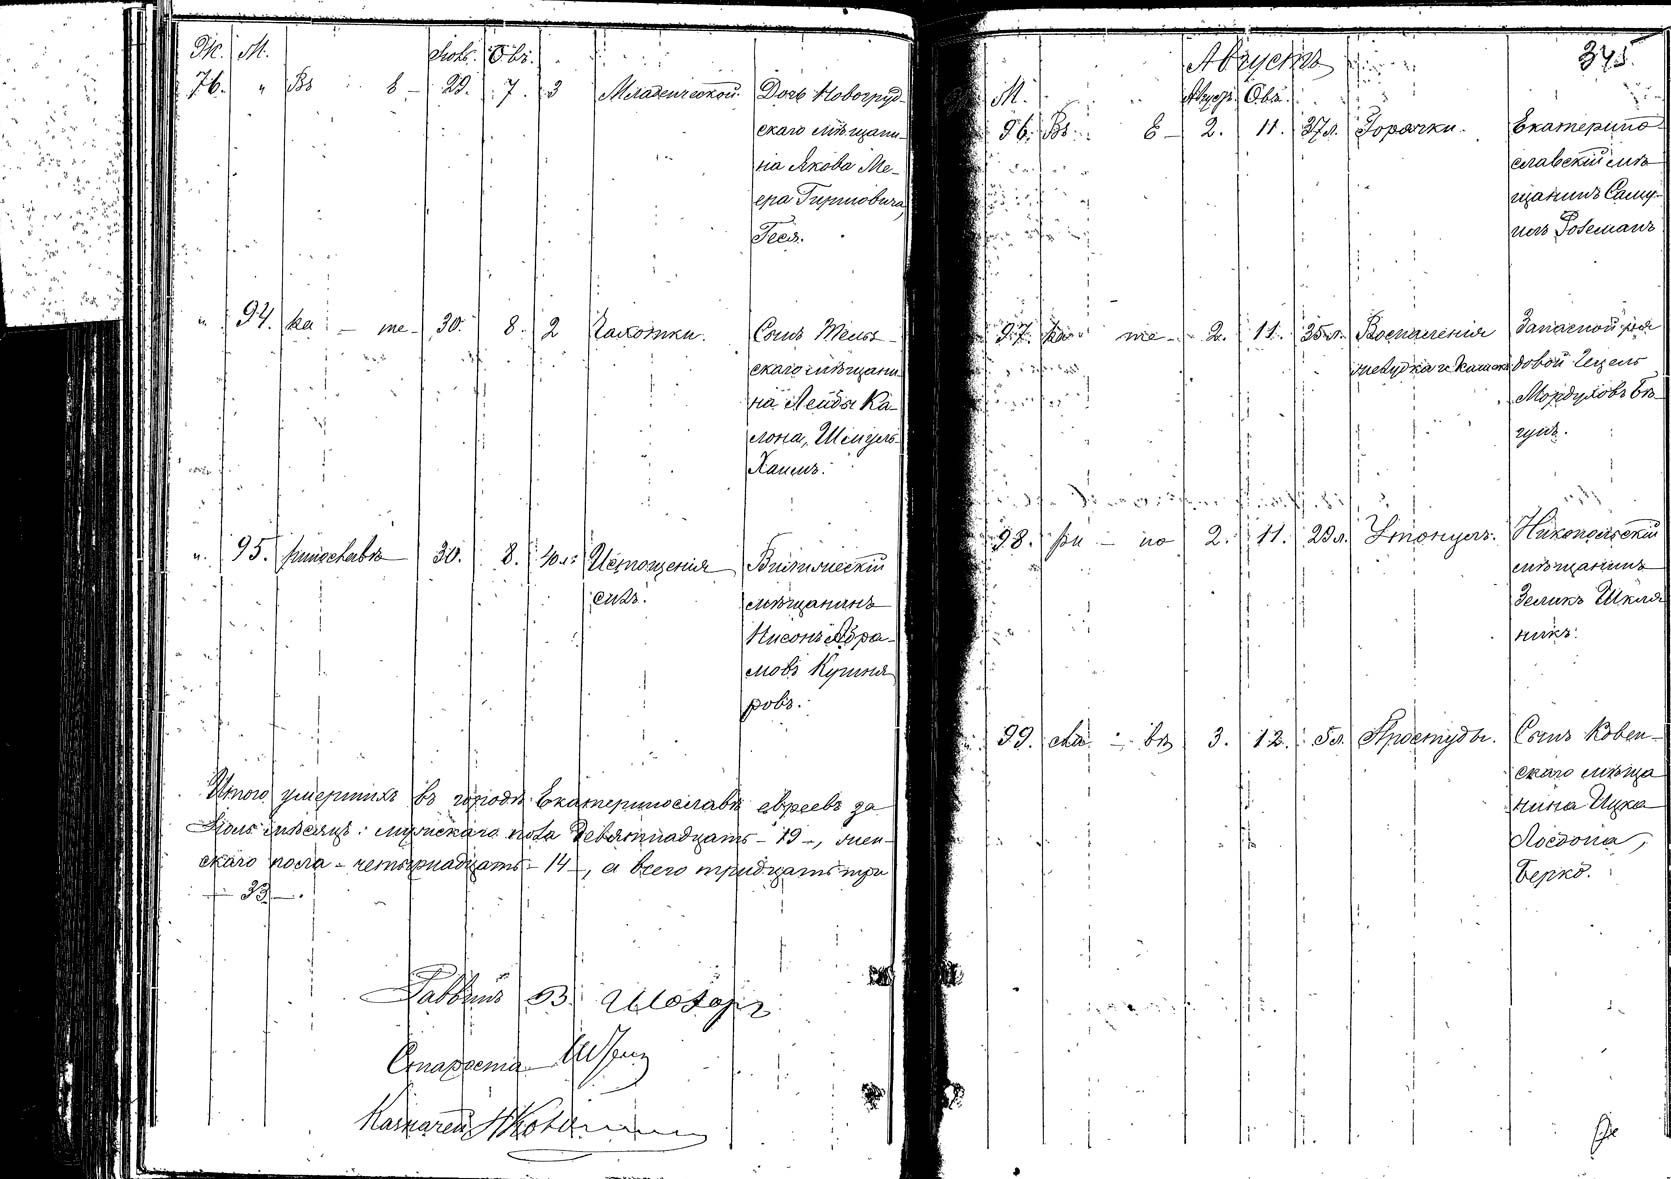 Ж. М. Іюль. Овъ.
76. " Въ Е- 29. 7. 3 Младенческой. Дочь Новогруд-
скаго мѣщани-
на Якова Ме-
ера Гиршовича,
Геся.
" 94. ка - те- 30. 8. 2 Чахотки. Сынъ Тельз-
скаго мѣщани-
на Лейбы Ка-
лона, Шмуель-
Хаимъ.
" 95. ринославлѣ 30. 8. Истощенія
силъ.
мѣщанинъ
Нисонъ Абра-
мовъ Кушня-
ровъ.
Итого умершихъ въ городѣ Екатеринославѣ евреевъ за
Іюль мѣсяцъ: мужскаго пола девятнадцать - 19 -, жен-
скаго пола - четырнадцать - 14 -, а всего тридцать три
- 33 -.
Раввинъ В.
Староста
Казначей
375.
Августъ
М. Август. Овъ.
96. Въ Е- 2. 11. 37л. Горячки. Екатерино-
славскій мѣ-
щанинъ Саму-
илъ Роземанъ
97. ка те- 2. 11. 35л. Воспаленія Запасной ря-
желудка и кишекъ довой Іцель
Мордуховъ Бѣ-
гунъ.
98. ри - но 2. 11. 29л. Утонулъ. Никопольскій
мѣщанинъ
Зеликъ Шкля-
никъ.
99. сла - вѣ 3. 12. 5л. Простуды. Сынъ Ковен-
скаго мѣща-
нина Ицка
Лосдона,
Берко.